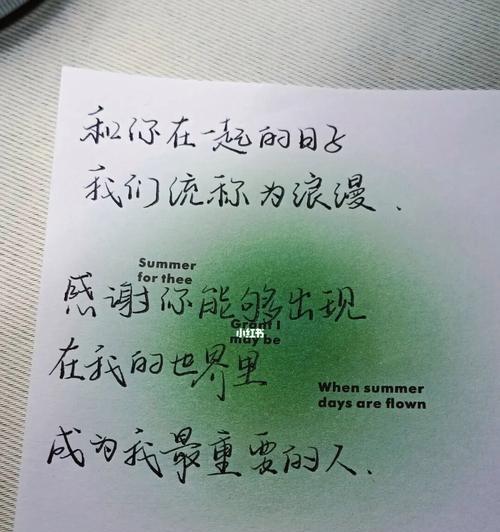 和你在一起的日子
我们流称为浪漫.
Summer
for thee
感谢你能够出现
Grant I
may be
小红书
在我的世界里
When summer
days are flown
成为我最重要的人.